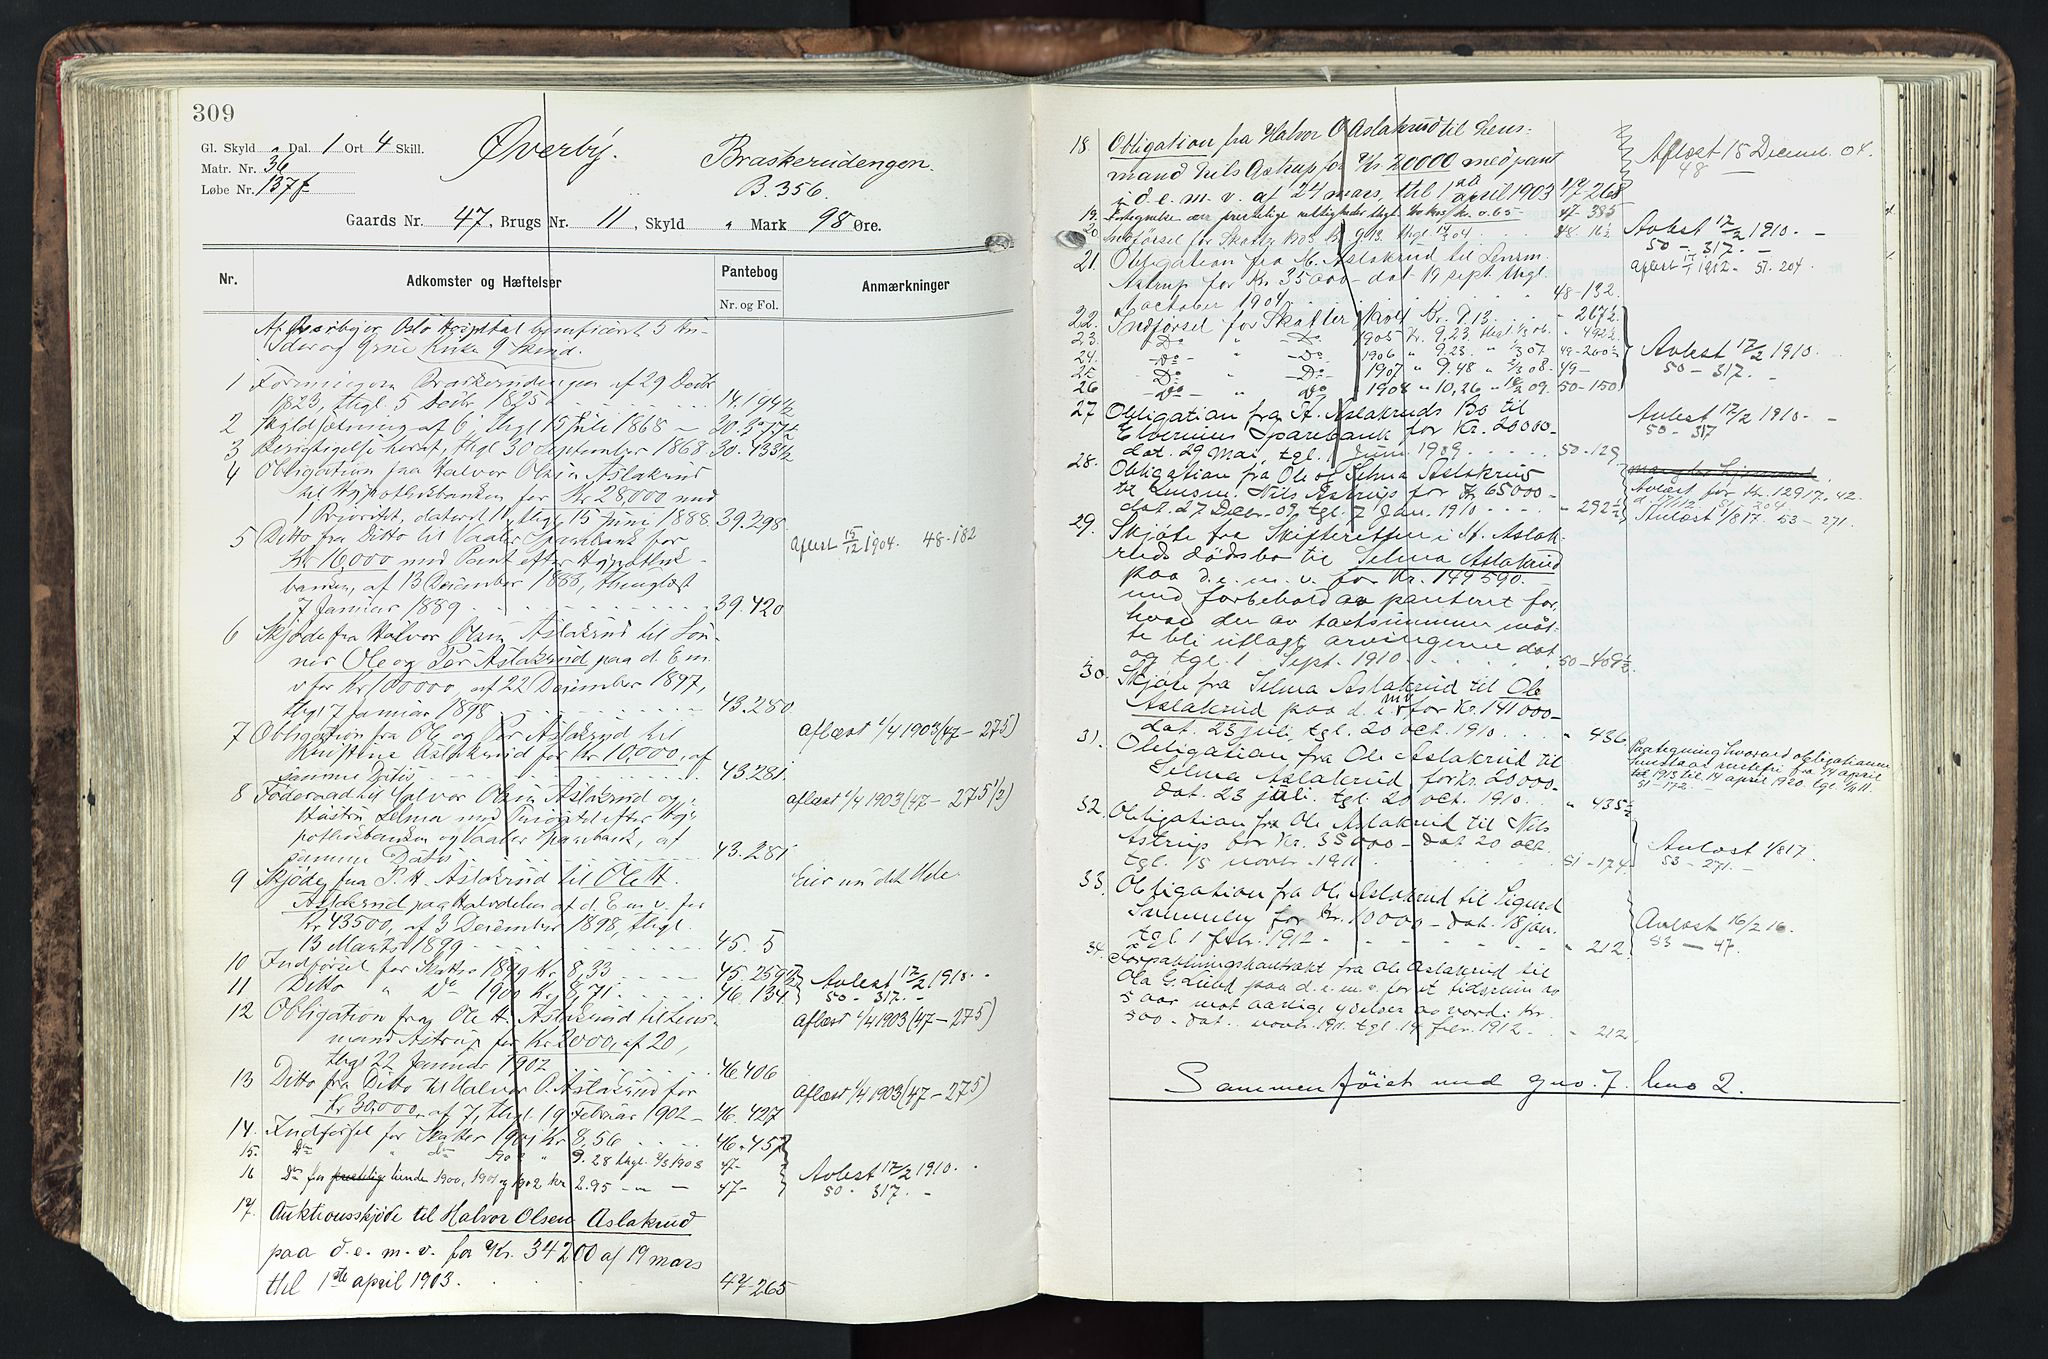 309
Gl. Skyld " Dal. 1 Ort 4 Skill.
Matr. Nr. 36
Løbe Nr. 137f
Øverby. Braskerudengen.
B. 356.
Gaards Nr. 47, Brugs Nr. 11, Skyld " Mark 98 Øre.
Nr. Adkomster og Hæftelser Pantebog Anmærkninger
Nr. og Fol.
Oslo Hospital beneficeret 5
og Grue Kirke 9 Skind.
1 Braskerudengen af 29 Decbr
1823, thgl. 5 Decbr. 1825 14.194½
2 Skyldsætning af 6, thgl 15 Juli 1868 30.377
3 Berigtigelse heraf, thgl 30 September 1868. 30.433½
4 Obligation fra Halvor Olsen Aslakrud
til Hypothekbanken for Kr 28,000 med
1 Prioritet, dateret 11, thgl 15 Juni 1888. 39.298
5 Ditto fra Ditto til Vaaler Sparebank for
Kr 16,000 med Pant efter Hypothek-
banken, af 13 December 1888, thinglæst
7 Januar 1889 39.420
aflæst 15/12 1904. 48-182
6 Skjøde fra Halvor Olsen Aslakrud til Søn-
ner Ole og Per Aslakrud paa d. E m.
v for Kr 100000, af 22 December 1897,
thgl 7 Januar 1898 43.280
7 Obligation fra Ole og Per Aslakrud til
Kristine Aslakrud for Kr 10,000, af
samme Datis 43.281
aflæst 1/4 1903 (47-275)
8 Føderaad til Halvor Olsen Aslakrud og
Hustru Selma med Prioritet efter Hy-
pothekbanken og Vaaler Sparebank, af
samme Datis 43.281
aflæst 1/4 1903 (47-275½)
9 Skjøde fra P. H. Aslakrud til Ole H.
Aslakrud paa Halvdelen af d. E m v. for
Kr 43500, af 3 December 1898, thgl.
13 Marts 1899 45. 5
Eier nu det Hele.
10 Indførsel for Skatter 1899 Kr 8,33 45.259½
11 Ditto " Do 1900 Kr 8,71 46.134
Avlest 17/2 1910.
50-317.
12 Obligation fra Ole H. Aslakrud til Lens-
mand Astrup for Kr 2000, af 20,
thgl 22 Januar 1902 46.406
aflæst 1/4 1903 (47-275)
13 Ditto fra Ditto til Halvor O. Aslakrud for
Kr 30,000, af 7, thgl. 19 Februar 1902 46.427
aflæst 1/4 1903 (47-275)
14. Indførsel for Skatter 1901 Kr 8,56 46.457
15. Do " Do 1902 " 9.28 thgl. 2/3 1903 47-
16 Do for tiende 1900, 1901 og 1902 Kr 2.95 47-
Avlest 17/2 1910.
50-317.
17. Auktionsskjøde til Halvor Olsen Aslakrud
paa d. e. m. v. for Kr. 34200 af 19 mars
thl 1ste april 1903. 47-265
18. Obligation fra Halvor O Aslakrud til Lens-
mand Nils Astrup for Kr 20000 med pant
i d. e. m. v. af 24 mars, thl 1ste april 1903 47-268
Aflæst 15 Decemb. 04.
48
19. 47-385
20. Indførsel for Skatter 1903 Kr 9.13. 48-16½
Avlest 17/2 1910.
50-317.
21. Obligation fra H. Aslakrud til Lensm.
Astrup for Kr. 35000 - dat 19 sept. thgl.
october 1904 48-132
aflæst 1912. 51.204
22. Indførsel for Skatter 1904 Kr. 9.13. " 267½
23. Do " Do 1905 Kr. 9,23 " 492½
24. Do " Do 1906 " 9.23 49-260½
25 Do " Do 1907 " 9.48 49-
26 Do " Do 1908 " 10,26 50-150
Avlest 17/2 1910.
50-317.
27 Obligation fra H. Aslakruds Bo til
Elverums Sparebank for Kr. 20000-
dat. 29 Mai, tgl. 1 Juni 1909 50-129
Avlest 17/2 1910.
50-317
28. Obligation fra Ole og Selma Aslakrud
til Lensm. Nils Astrup for Kr 65000-
dat. 27 Decbr. 09, tgl. 7 Jan. 1910 " 292½
Avlæst for Kr. 12917.42.
51 204
Avlæst 1/8 17. 53-271.
29. Skjøte fra Skifteretten i H. Aslak-
ruds dødsbo til Selma Aslakrud
paa d. e. m. v. for Kr. 149590.-
med forbehold av panteret for,
hvad der av kjøpesummen maat-
te bli utlagt arvingerne dat.
og tgl. 1 Sept. 1910. 50-409½
30. Skjøte fra Selma Aslakrud til Ole
Aslakrud paa d. e. m v for Kr. 141000-
dat. 23 juli tgl. 20 oct. 1910. " 436
31. Obligation fra Ole Aslakrud til
Selma Aslakrud for Kr. 20000-
dat. 23 juli. tgl. 20 oct. 1910. " 435½
Paategning hvorved obligationen
rentefri fra 14 april
1913 til 14 april 1920. tgl.
51-172.
32. Obligation fra Ole Aslakrud til Nils
Astrup for Kr. 35000- dat 20 oct
tgl. 15 novbr. 1911 51-124
Avlæst 1/8 17.
53-271.-
33. Obligation fra Ole Aslakrud til Sigurd
for Kr. 10000- dat. 18 jan.
tgl 1 febr. 1912 " 212
Avlæst 16/2 16.
53-47.
34. Forpaktningskontrakt fra Ole Aslakrud til
Ola G. Lund paa d. e. m. v. for et tidsrum av
5 aar mot aarlige ydelser av værdi Kr.
500- dat. novbr. 1911 tgl. 14 febr. 1912 " 212
Sammenføiet med gno. 7. bno 2.